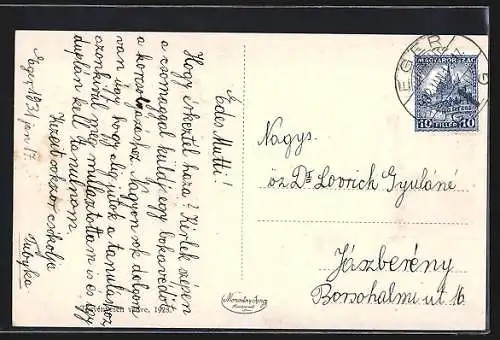 Édes Mutti!
Hogy érkeztél haza? Kérlek szépen
a csomaggal küldj egy bokavédőt
a korcsolyához. Nagyon sok dolgom
van úgy hogy alig jutok a tanuláshoz
azonkívül még mulasztottam is és így
duplán kell tanulnom.
Kezeit sokszor csókolja
Tubyka
1931 jan 17.
EGER
MAGYARORSZÁG
40 FILLÉR 40
Nagys.
öz Dr. Lovrich Gyuláné
Jászberény
Borsohalmi ut 16
1923.